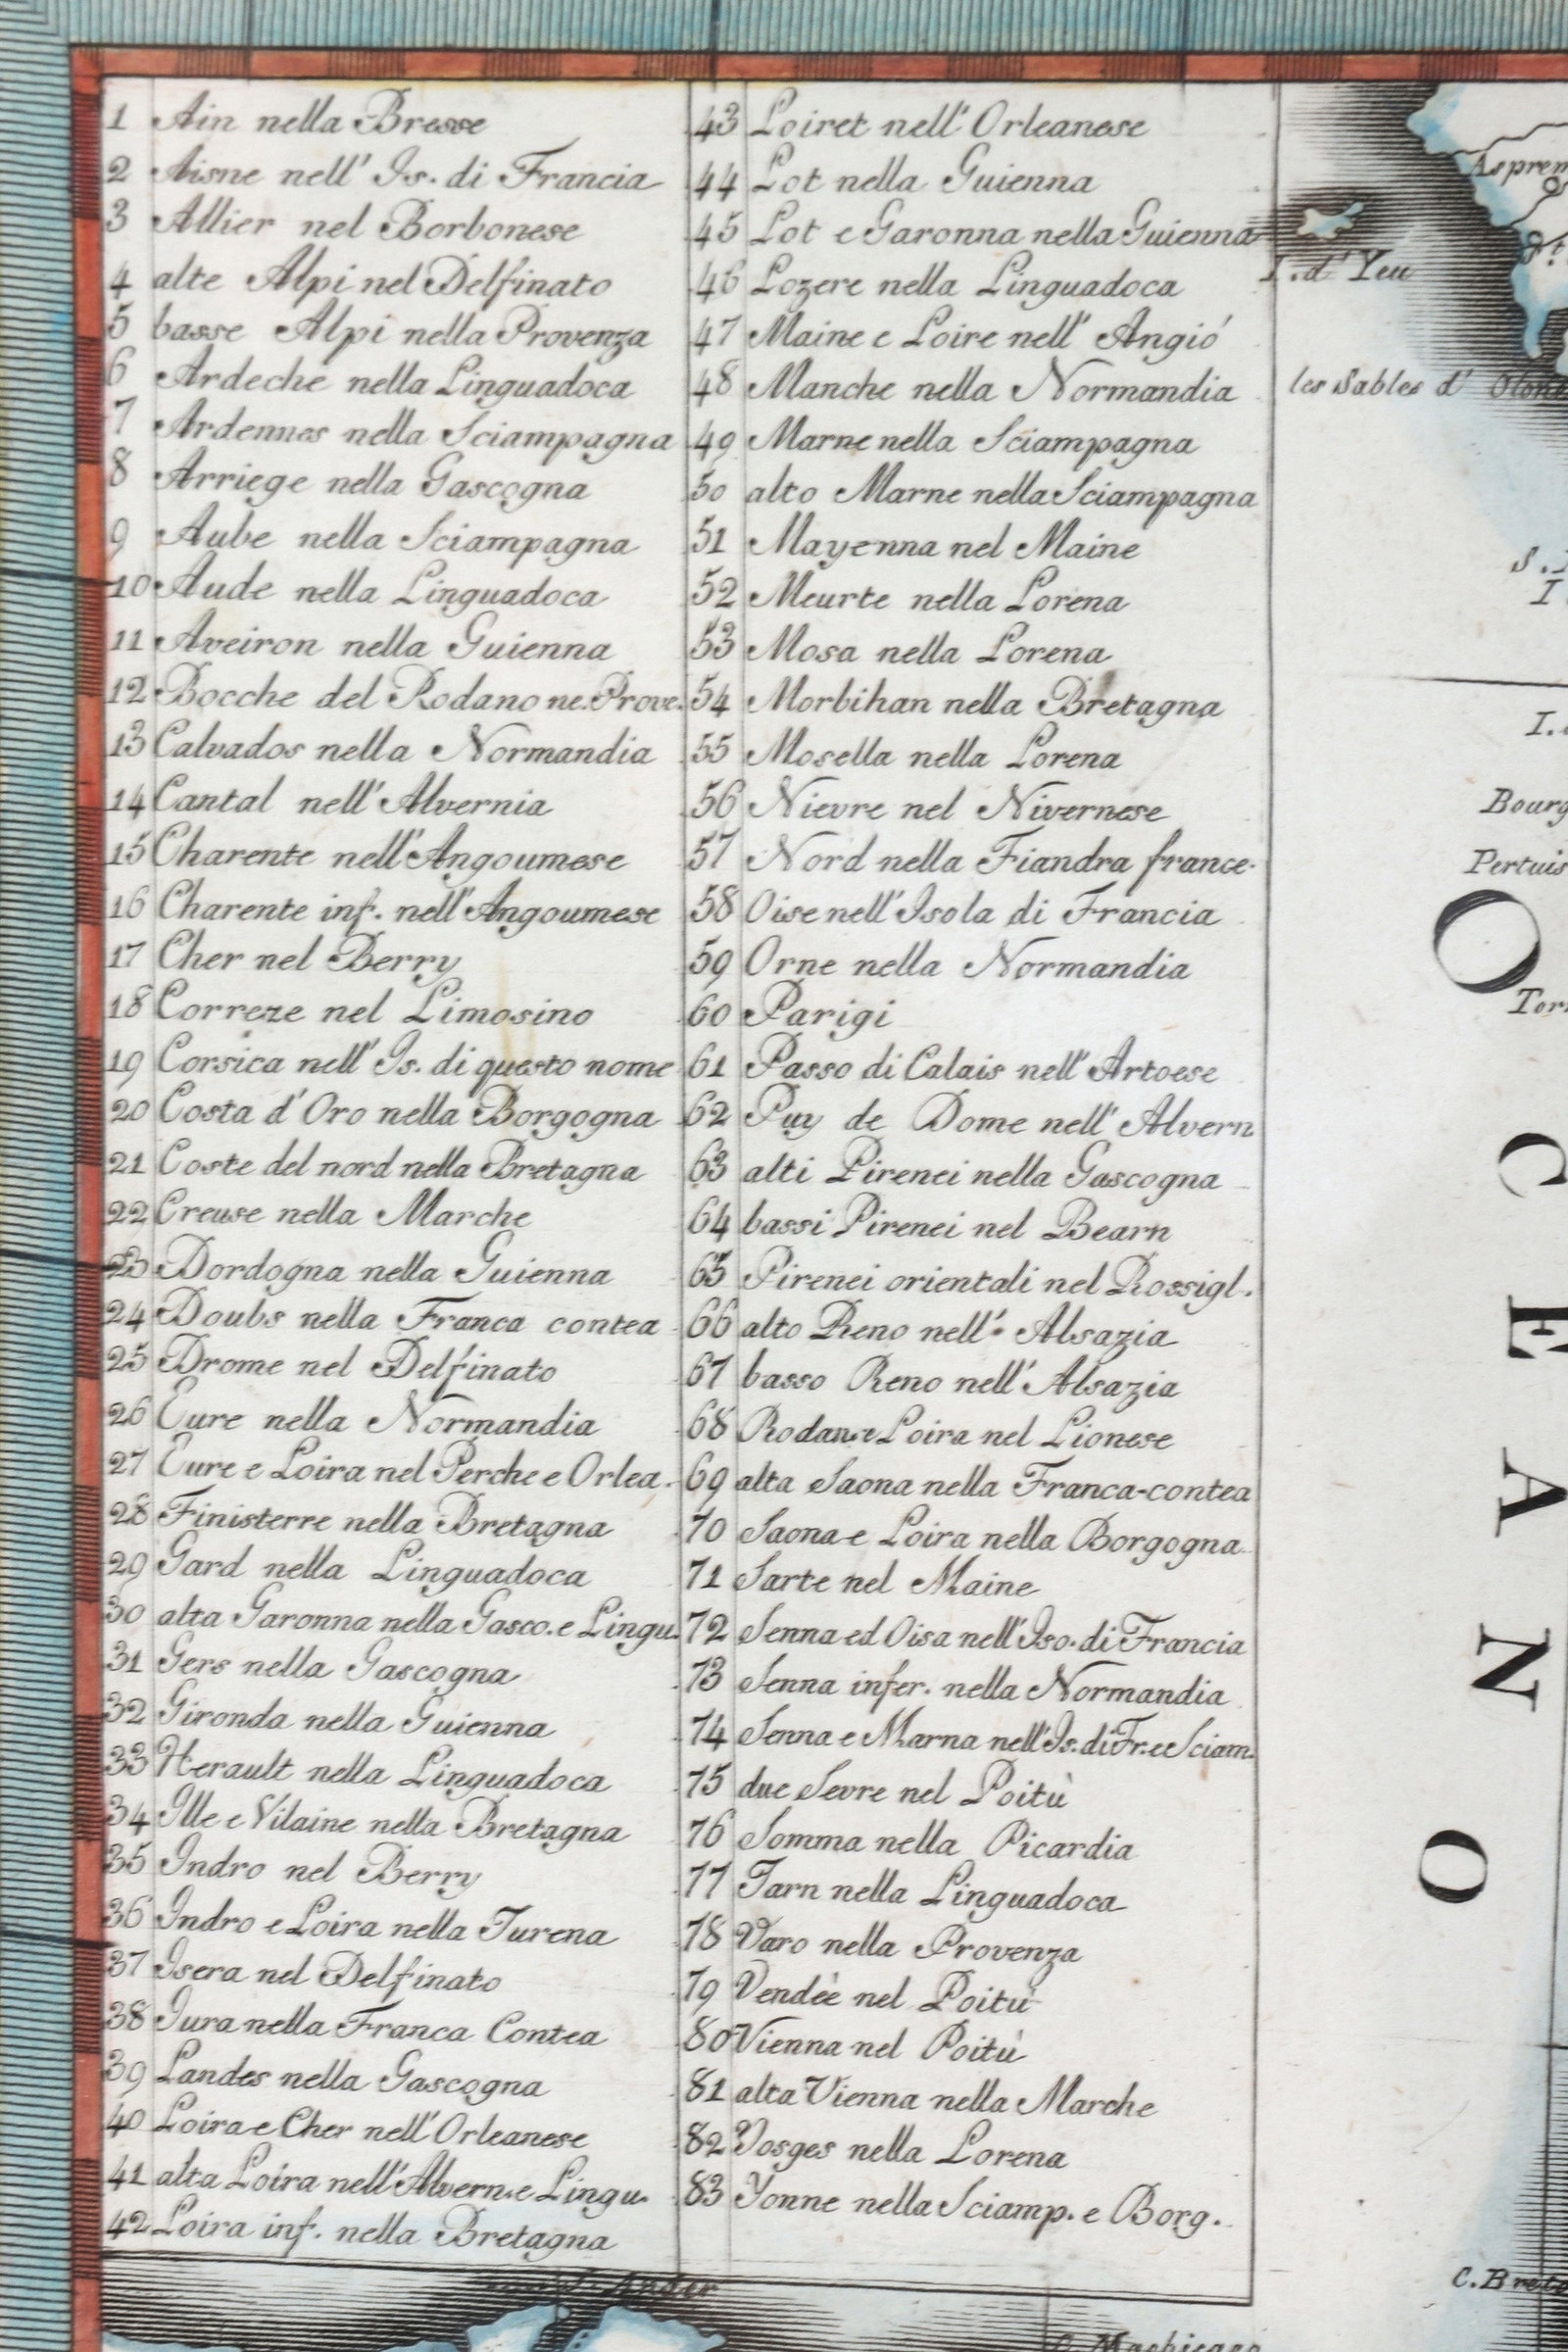 1 Ain nella Bresse
2 Aisne nell' Is. di Francia
3 Allier nel Borbonese
4 alte Alpi nel Delfinato
5 basse Alpi nella Provenza
6 Ardeche nella Linguadoca
7 Ardennes nella Sciampagna
8 Arriege nella Gascogna
9 Aube nella Sciampagna
10 Aude nella Linguadoca
11 Aveiron nella Guienna
12 Bocche del Rodano ne. Prove.
13 Calvados nella Normandia
14 Cantal nell' Alvernia
15 Charente nell' Angoumese
16 Charente inf. nell' Angoumese
17 Cher nel Berry
18 Correze nel Limosino
19 Corsica nell' Is. di questo nome
20 Costa d' Oro nella Borgogna
21 Coste del nord nella Bretagna
22 Creuse nella Marche
23 Dordogna nella Guienna
24 Doubs nella Franca contea
25 Drome nel Delfinato
26 Eure nella Normandia
27 Eure e Loira nel Perche e Orlea.
28 Finisterre nella Bretagna
29 Gard nella Linguadoca
30 alta Garonna nella Gasco. e Lingu.
31 Gers nella Gascogna
32 Gironda nella Guienna
33 Herault nella Linguadoca
34 Ille e Vilaine nella Bretagna
35 Indro nel Berry
36 Indro e Loira nella Turena
37 Isera nel Delfinato
38 Jura nella Franca Contea
39 Landes nella Gascogna
40 Loira e Cher nell' Orleanese
41 alta Loira nell' Alvern. e Lingu.
42 Loira inf. nella Bretagna
43 Loiret nell' Orleanese
44 Lot nella Guienna
45 Lot e Garonna nella Guienna
46 Lozere nella Linguadoca
47 Maine e Loire nell' Angió
48 Manche nella Normandia
49 Marne nella Sciampagna
50 alto Marne nella Sciampagna
51 Mayenna nel Maine
52 Meurte nella Lorena
53 Mosa nella Lorena
54 Morbihan nella Bretagna
55 Mosella nella Lorena
56 Nievre nel Nivernese
57 Nord nella Fiandra france.
58 Oise nell' Isola di Francia
59 Orne nella Normandia
60 Parigi
61 Passo di Calais nell' Artoese
62 Puy de Dome nell' Alvern
63 alti Pirenei nella Gascogna
64 bassi Pirenei nel Bearn
65 Pirenei orientali nel Rossigl.
66 alto Reno nell' Alsazia
67 basso Reno nell' Alsazia
68 Rodan. e Loira nel Lionese
69 alta Saona nella Franca-contea
70 Saona e Loira nella Borgogna
71 Sarte nel Maine
72 Senna ed Oisa nell' Iso. di Francia
73 Senna infer. nella Normandia
74 Senna e Marna nell' Is. di Fr. e Sciam.
75 due Sevre nel Poitù
76 Somma nella Picardia
77 Tarn nella Linguadoca
78 Varo nella Provenza
79 Vendèe nel Poitù
80 Vienna nel Poitù
81 alta Vienna nella Marche
82 Vosges nella Lorena
83 Yonne nella Sciamp. e Borg.
I. d' Yeu
les Sables d'
Pertuis
OCEANO